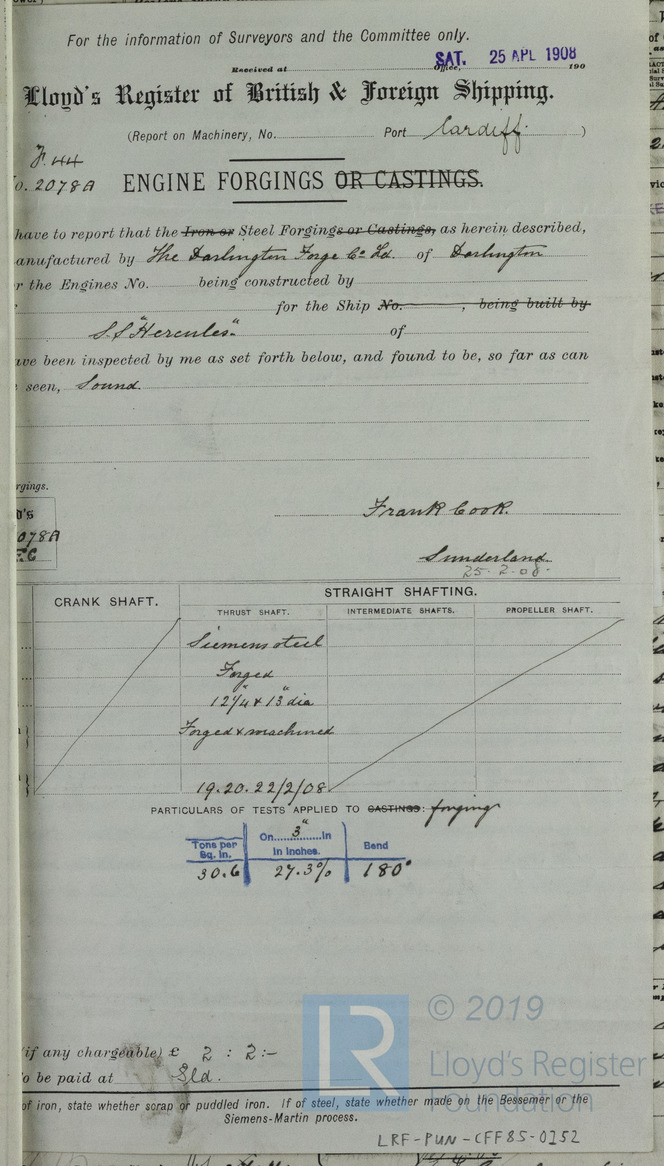 For the information of Surveyors and the Committee only.
SAT. 25 APL 1908
Received at Office, 190
Lloyd's Register of British & Foreign Shipping.
(Report on Machinery, No. Port Cardiff. )
F.44
o. 2078A ENGINE FORGINGS OR CASTINGS.
have to report that the Iron or Steel Forgings or Castings, as herein described,
anufactured by The Darlington Forge Co Ld. of Darlington
r the Engines No. being constructed by
for the Ship No. , being built by
S.S "Hercules". of
ave been inspected by me as set forth below, and found to be, so far as can
seen, Sound.
rgings.
D'S
078A
Frank Cook.
Sunderland.
25.2.08.
CRANK SHAFT. STRAIGHT SHAFTING.
THRUST SHAFT. INTERMEDIATE SHAFTS. PROPELLER SHAFT.
Siemens steel
Forged
12¼" & 13" dia
Forged & machined
19.20.22/2/08
PARTICULARS OF TESTS APPLIED TO CASTINGS: forging
Tons per Sq. In. On 3" in In Inches. Bend
30.6 27.3% 180°
(if any chargeable) £ 2 : 2:-
o be paid at Sld.
of iron, state whether scrap or puddled iron. If of steel, state whether made on the Bessemer or the
Siemens-Martin process.
LRF-PUN-CFF85-0152
LR
© 2019
Lloyd's Register
Foundation